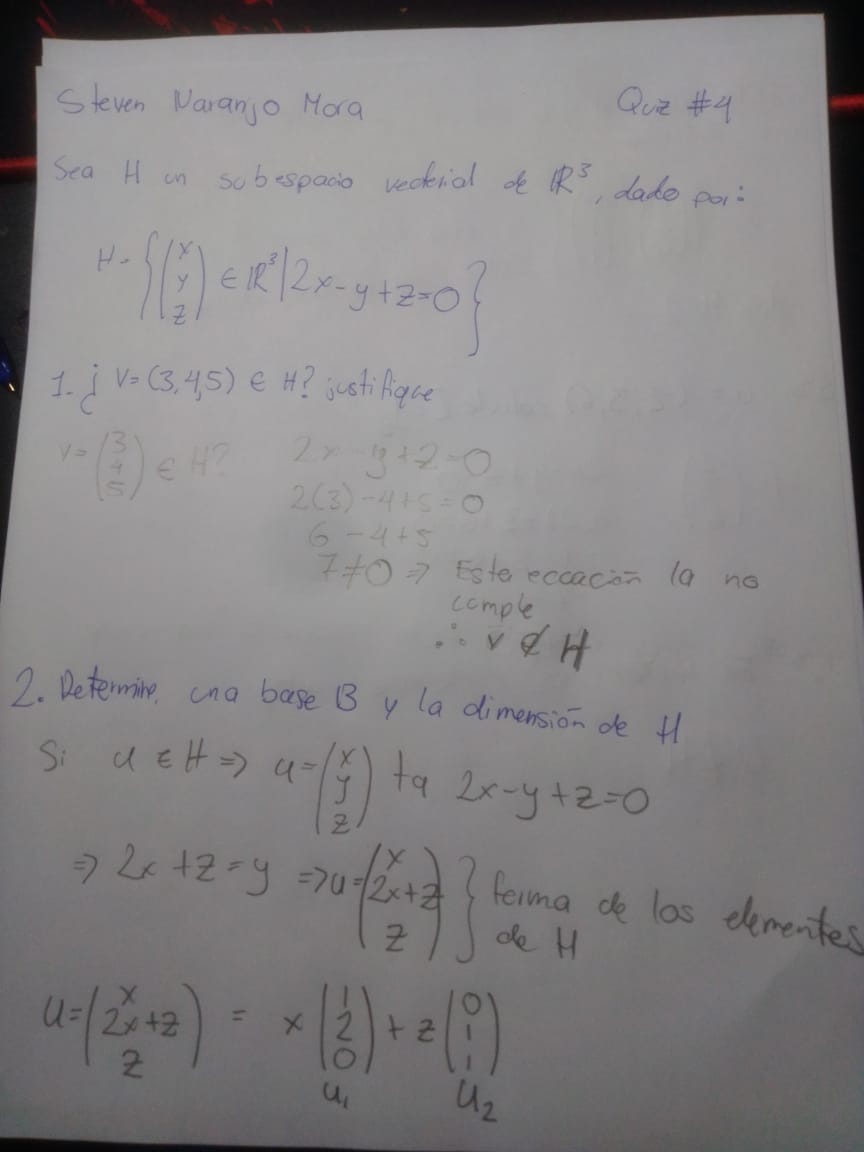 Steven Naranjo Mora Quiz #4
Sea H un subespacio vectorial de ℝ³, dado por:
H = {(x y z) ∈ ℝ³ | 2x - y + z = 0}
1. ¿ V = (3,4,5) ∈ H? justifique
v = (3 4 5) ∈ H? 2x - y + z = 0
2(3) - 4 + 5 = 0
6 - 4 + 5
7 ≠ 0 ⇒ Esta eccación la no
cumple
∴ v ∉ H
2. Determine una base B y la dimensión de H
Si u ∈ H ⇒ u = (x y z) tq 2x - y + z = 0
⇒ 2x + z = y ⇒ u = (x 2x+z z) } forma de los elementos
de H
u = (x 2x+z z) = x (1 2 0) + z (0 1 1)
u₁ u₂